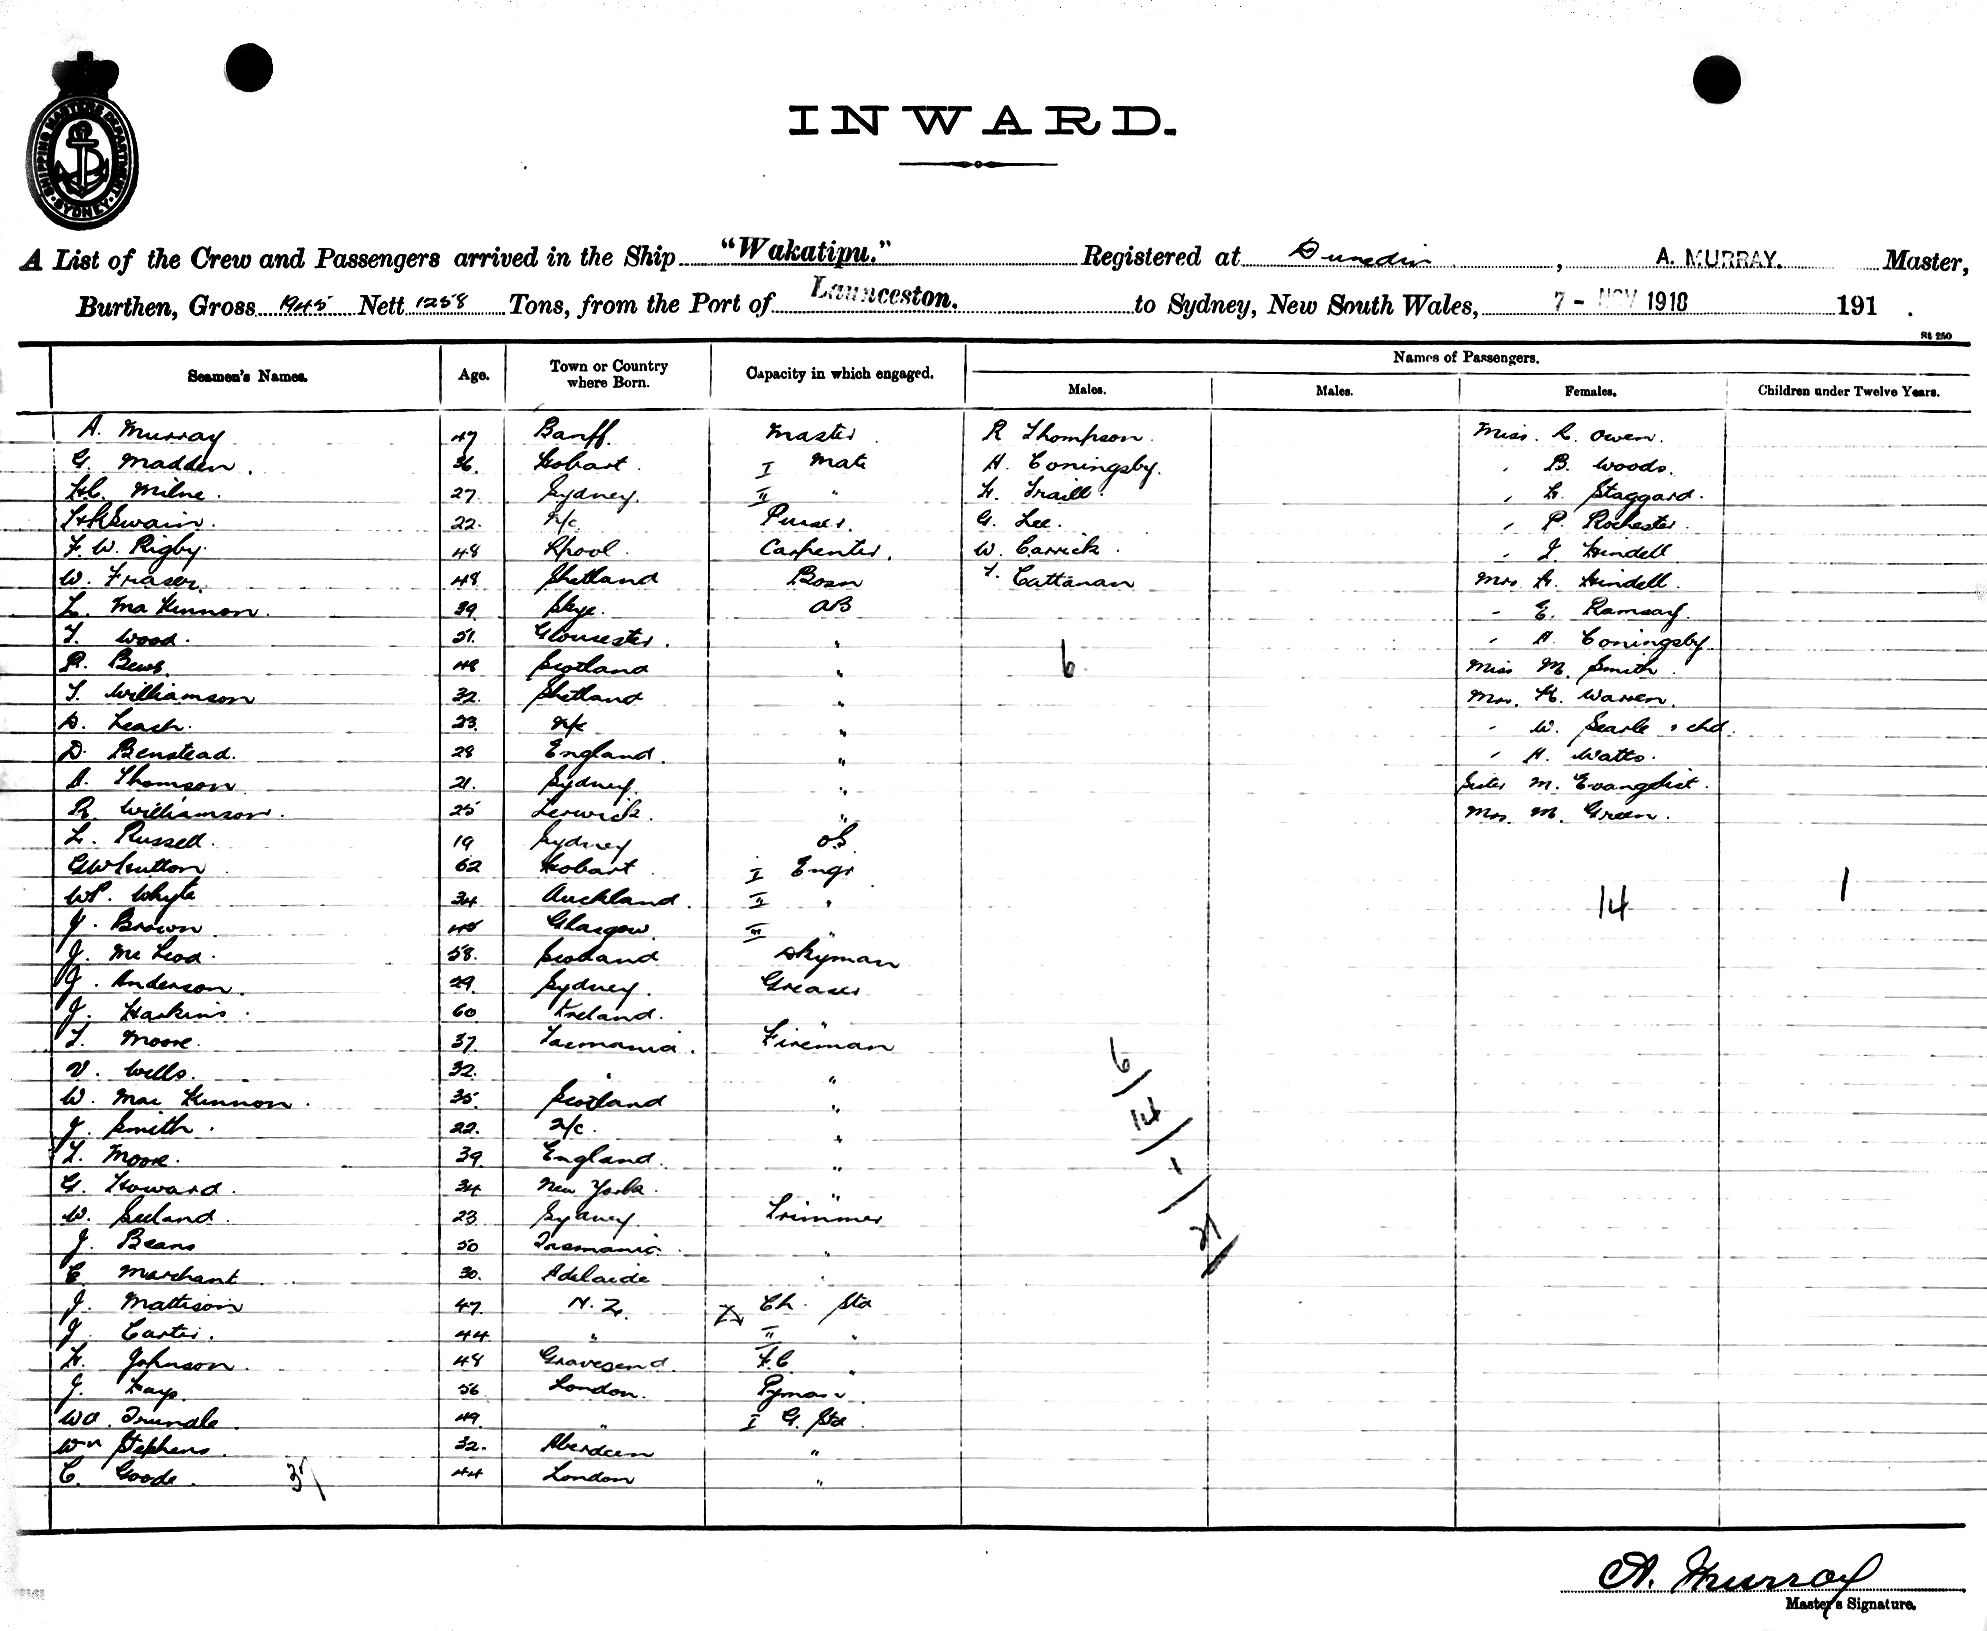 SHIPPING MASTERS DEPARTMENT SYDNEY
INWARD.
A List of the Crew and Passengers arrived in the Ship "Wakatipu." Registered at Dunedin, A. MURRAY. Master,
Burthen, Gross 1945 Nett 1258 Tons, from the Port of Launceston. to Sydney, New South Wales, 7 - NOV 1910 191 .
St 250
Names of Passengers.
Seamen's Names. Age. Town or Country where Born. Capacity in which engaged. Males. Males. Females. Children under Twelve Years.
A. Murray 47 Banff. Master R Thompson. Miss. R. Owen.
G. Madden. 36. Hobart. I Mate H. Coningsby. " B. Woods.
Milne. 27. Sydney. II " H. Traill. " L. Staggard.
Swain. 22. n/c Purser. G. Lee. " P. Rochester.
F. W. Rigby. 48 Lpool. Carpenter. W. Carrick. " J. Hindell
W. Fraser. 48 Shetland Bosn T. Cattanan Mrs H. Hindell.
L. MacKinnon. 39. Skye. AB " E. Ramsay.
T. Wood. 51. Gloucester. " 6 " A. Coningsby
R. Bews. 48 Scotland " Miss M. Smith.
T. Williamson 32. Shetland " Mrs. H. Warren.
D. Leach. 23. n/c " " W. Searle & chd.
D. Benstead. 28 England. " " H. Watts.
A. Thomson 21. Sydney. " Sister M. Evangelist.
R. Williamson. 25 Lerwick. " Mrs. M. Green.
L. Russell. 19 Sydney OS
GW Hutton 62 Hobart. I Engr
WP. Whyte 34 Auckland. II " 14 1
J. Brown 45 Glasgow. III "
J. McLeod. 58. Scotland Dkyman
J. Anderson. 29. Sydney. Greaser
J. Harkins. 60 Ireland. "
T. Moore. 37. Tasmania. Fireman 6
V. Wells. 32. " "
W. MacKinnon. 35. Scotland "
J. Smith. 22. n/c. " 14
T. Moore. 39. England. "
G. Howard. 34 New York. " 1
W. Seeland. 23 Sydney Trimmer
J. Beans 50 Tasmania. " 21
E. Marchant 30. Adelaide "
J. Mattison 47. N. Z. Ch. Std
J. Carter. 44. " II "
H. Johnson. 48 Gravesend. F.C "
J. Hays. 56 London. Pyman.
WA. Trundle. 49. " I G. Std.
Wm Stephens. 32. Aberdeen "
C. Goode. 37 44 London "
A. Murray
Master's Signature.